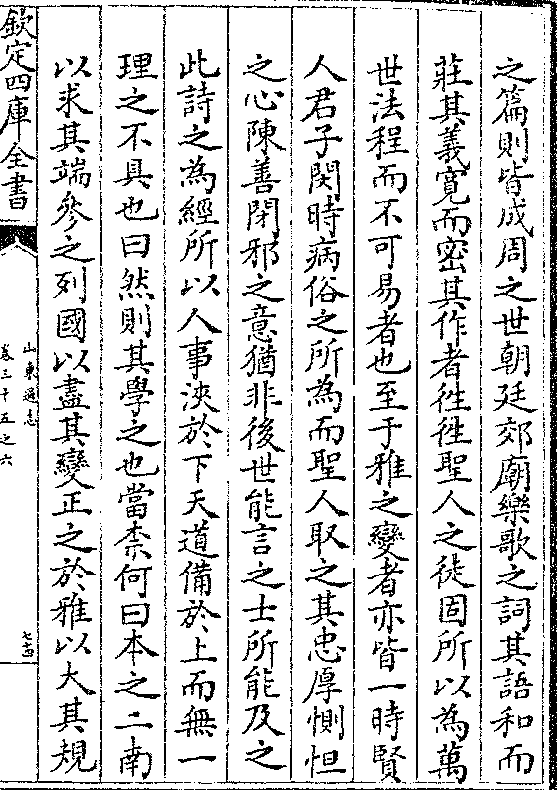 之篇則皆成周之世朝廷郊廟樂歌之詞其語和而
莊其義寬而密其作者徃徃聖人之徒固所以為萬
世法程而不可易者也至于雅之變者亦皆一時賢
人君子閔時病俗之所為而聖人取之其忠厚惻怛
之心陳善閉邪之意猶非後世能言之士所能及之
此詩之為經所以人事浹於下天道備於上而無一
理之不具也曰然則其學之也當柰何曰本之二南
以求其端參之列國以盡其變正之於雅以大其規
欽定四庫全書
山東通志
卷三十五之六